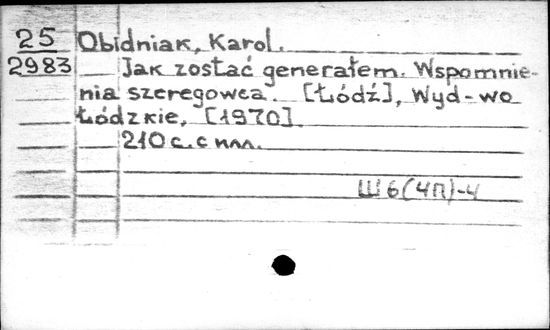 25 Obidniak, Karol.
2983 Jak zostać generałem. Wspomnie-
nia szeregowca. [Łódź], Wyd-wo
Łódzkie, [1970]
210 с. с илл.
Ш6(4П)-4